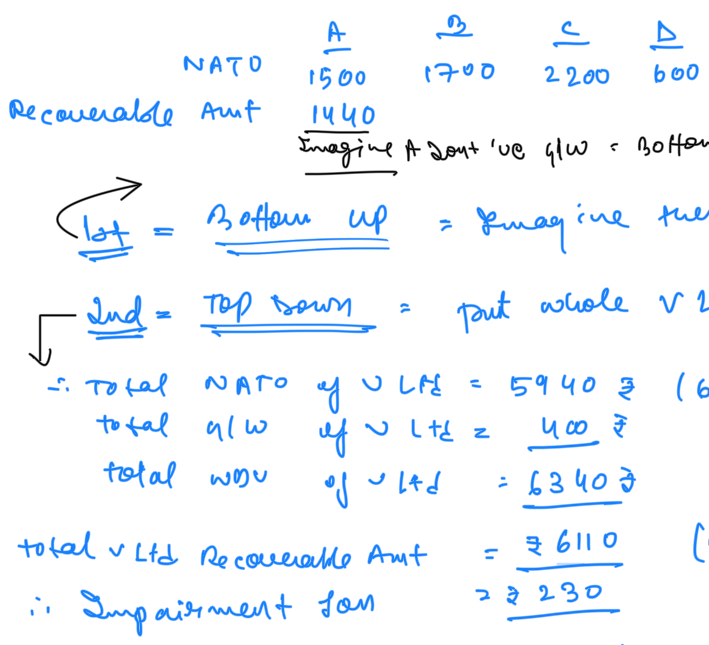 A B C D
NATO 1500 1700 2200 600
Recoverable Amt 1440
Imagine A Dont 've g/w = Bottom
1st = Bottom up = Imagine the
2nd = Top Down = put whole V L
∴ Total NATO of V Ltd = 5940 ₹ (6
total g/w of V Ltd = 400 ₹
total WDV of V Ltd = 6340 ₹
total V Ltd Recoverable Amt = ₹ 6110 (
∴ Impairment Loss = ₹ 230